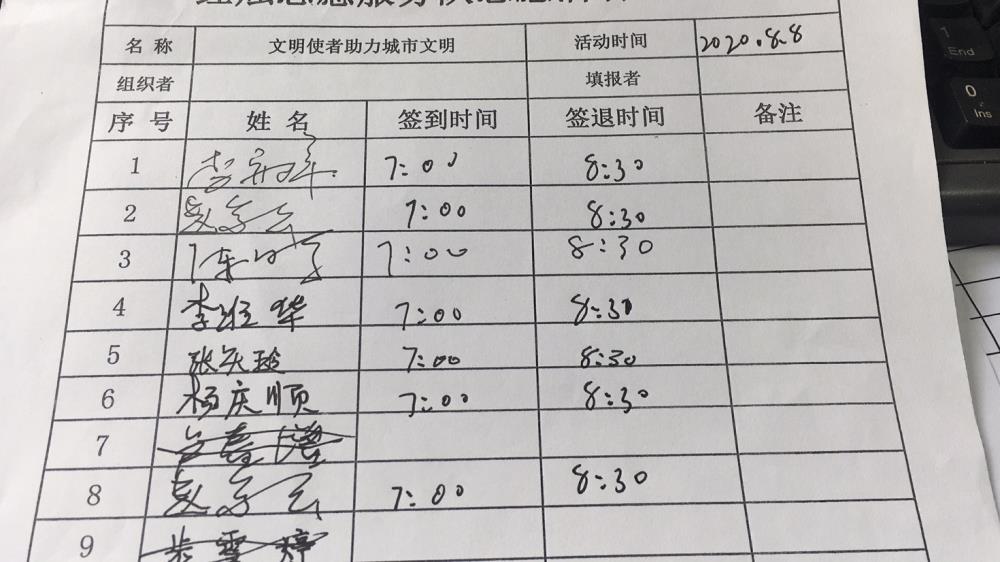 名 称 文明使者助力城市文明 活动时间 2020.8.8
组织者 填报者
序 号 姓 名 签到时间 签退时间 备注
1 7:00 8:30
2 7:00 8:30
3 7:00 8:30
4 李维华 7:00 8:30
5 7:00 8:30
6 杨庆顺 7:00 8:30
7
8 7:00 8:30
9
End
0
Ins